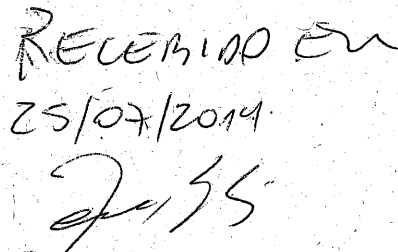 RECEBIDO EM
25/07/2014